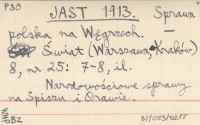 P30
JAST 1913. Sprawa
polska na Węgrzech.
Świat (Warszawa-Kraków)
8, nr 25: 7-8, il.
Narodowościowe sprawy
na Spiszu i Orawie.
GBZ